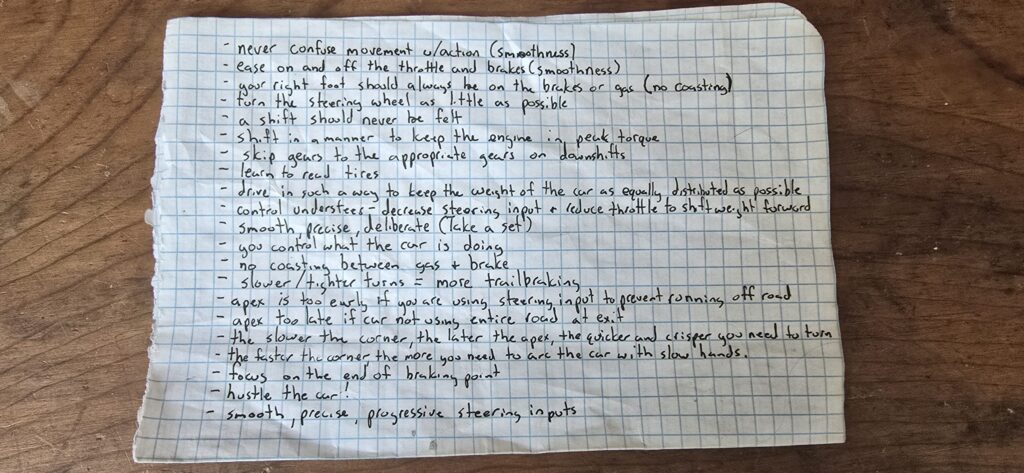 - never confuse movement w/action (smoothness)
- ease on and off the throttle and brakes (smoothness)
- your right foot should always be on the brakes or gas (no coasting)
- turn the steering wheel as little as possible
- a shift should never be felt
- shift in a manner to keep the engine in peak torque
- skip gears to the appropriate gears on downshifts
- learn to read tires
- drive in such a way to keep the weight of the car as equally distributed as possible
- control understeer - decrease steering input + reduce throttle to shift weight forward
- smooth, precise, deliberate (Take a set)
- you control what the car is doing
- no coasting between gas + brake
- slower/tighter turns = more trailbraking
- apex is too early if you are using steering input to prevent running off road
- apex too late if car not using entire road at exit
- the slower the corner, the later the apex, the quicker and crisper you need to turn
- the faster the corner, the more you need to arc the car with slow hands.
- focus on the end of braking point
- hustle the car!
- smooth, precise, progressive steering inputs